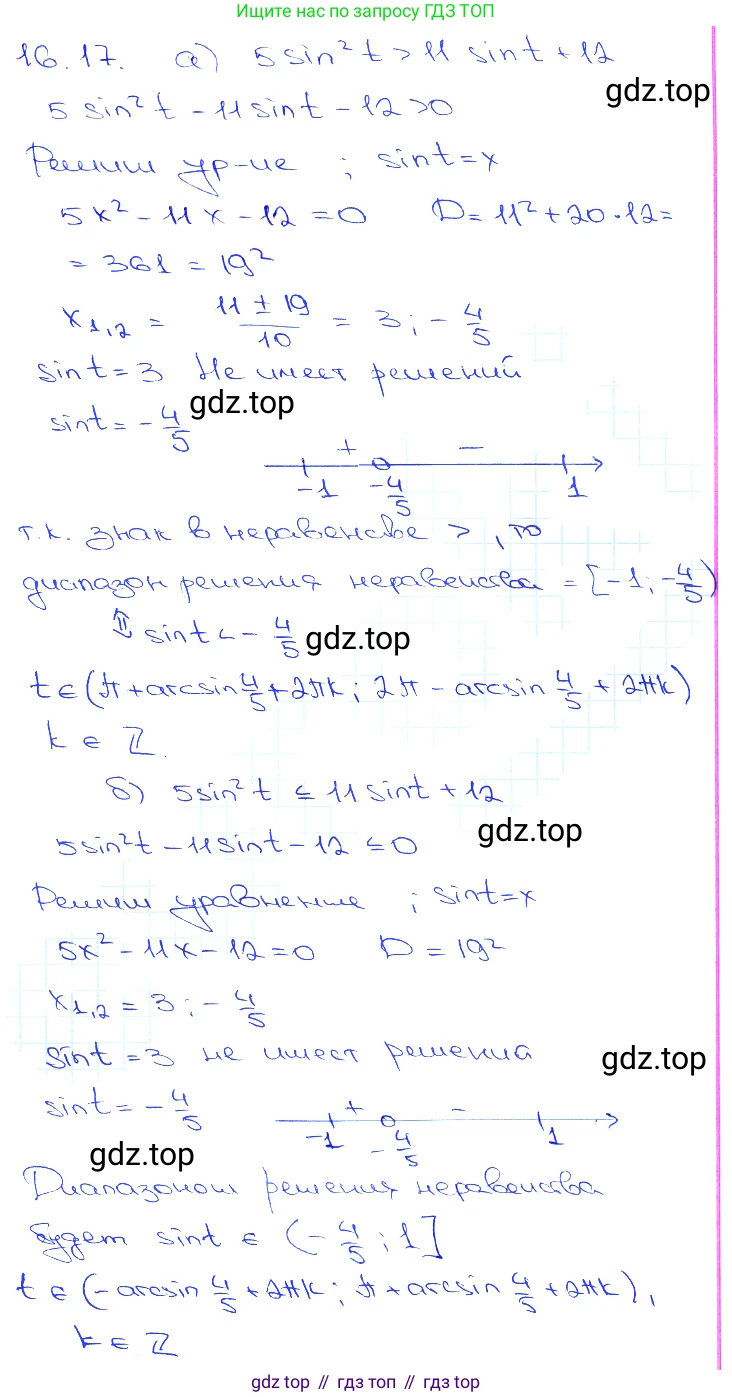 Ищите нас по запросу ГДЗ ТОП
16.17. а) 5 sin² t > 11 sin t + 12
gdz.top
5 sin² t - 11 sin t - 12 > 0
Решим ур-ие ; sin t = x
5x² - 11x - 12 = 0 D = 11² + 20 · 12 =
= 361 = 19²
x₁,₂ = (11 ± 19)/10 = 3; -4/5
sin t = 3 Не имеет решений
gdz.top
sin t = -4/5
+ -
-1 -4/5 1
т.к. знак в неравенстве >, то
диапазон решения неравенства = [-1; -4/5)
⇕ sin t < -4/5
gdz.top
t ∈ (π + arcsin 4/5 + 2πk; 2π - arcsin 4/5 + 2πk)
k ∈ ℤ.
б) 5 sin² t ≤ 11 sin t + 12
gdz.top
5 sin² t - 11 sin t - 12 ≤ 0
Решим уравнение ; sin t = x
5x² - 11x - 12 = 0 D = 19²
x₁,₂ = 3; -4/5
sin t = 3 не имеет решения
gdz.top
sin t = -4/5
+ -
-1 -4/5 1
gdz.top
Диапазоном решения неравенства
будет sin t ∈ (-4/5; 1]
t ∈ (-arcsin 4/5 + 2πk; π + arcsin 4/5 + 2πk),
k ∈ ℤ
gdz top // гдз топ // gdz top